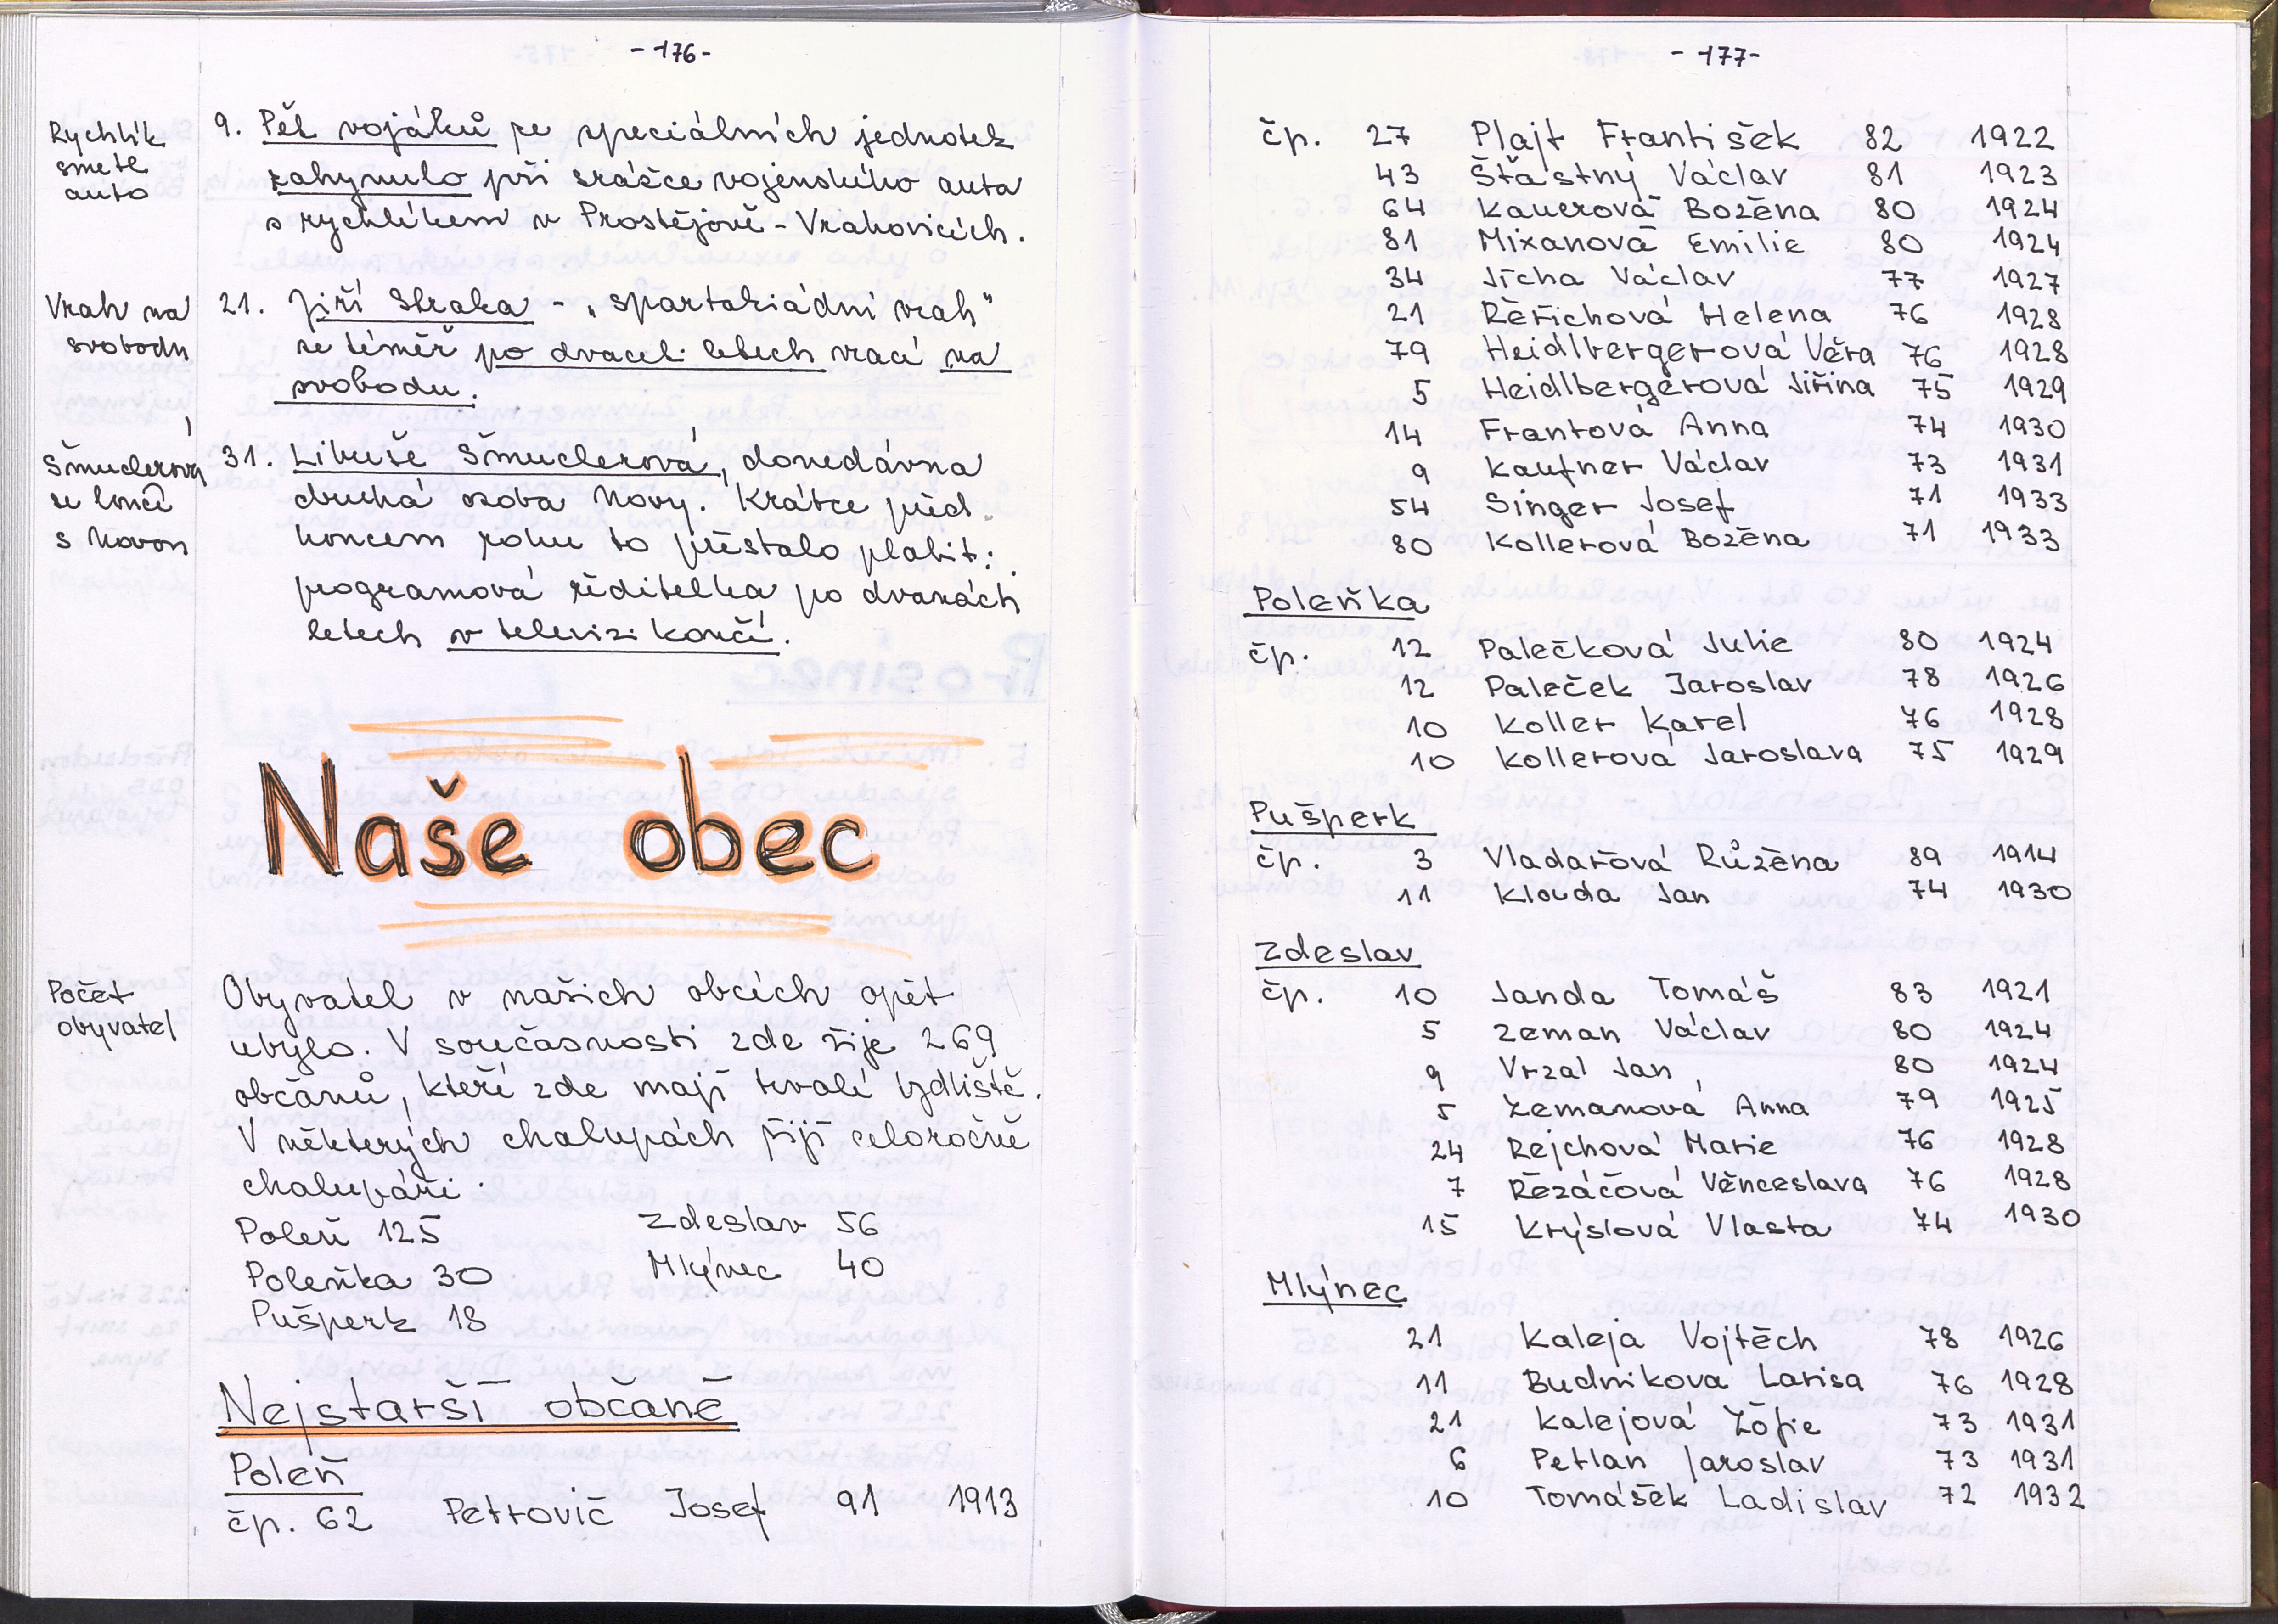 - 176 -
Rychlík
smetl
auto
9. Pět vojáků ze speciálních jednotek
zahynulo při srážce vojenského auta
s rychlíkem v Prostějově - Vrahovicích.
Vrah na
svobodu
21. Jiří Straka - „spartakiádní vrah"
se téměř po dvaceti letech vrací na
svobodu.
Šmuclerová
se loučí
s Novou
31. Libuše Šmuclerová, donedávna
druhá osoba Novy. Krátce před
koncem roku to přestalo platit:
programová ředitelka po dvanácti
letech v televizi končí.
Naše obec
Počet
obyvatel
Obyvatel v našich obcích opět
ubylo. V současnosti zde žije 269
občanů, kteří zde mají trvalé bydliště.
V některých chalupách žijí celoročně
chalupáři.
Poleň 125 Zdeslav 56
Poleňka 30 Mlýnec 40
Pušperk 18
Nejstarší občané
Poleň
čp. 62 Petrovič Josef 91 1913
- 177 -
čp. 27 Plajt František 82 1922
43 Šťastný Václav 81 1923
64 Kauerová Božena 80 1924
81 Mixanová Emilie 80 1924
34 Jícha Václav 77 1927
21 Řeřichová Helena 76 1928
79 Heidlbergerová Věra 76 1928
5 Heidlbergerová Jiřina 75 1929
14 Frantová Anna 74 1930
9 Kaufner Václav 73 1931
54 Singer Josef 71 1933
80 Kollerová Božena 71 1933
Poleňka
čp. 12 Palečková Julie 80 1924
12 Paleček Jaroslav 78 1926
10 Koller Karel 76 1928
10 Kollerová Jaroslava 75 1929
Pušperk
čp. 3 Vladařová Růžena 89 1914
11 Klouda Jan 74 1930
Zdeslav
čp. 10 Janda Tomáš 83 1921
5 Zeman Václav 80 1924
9 Vrzal Jan 80 1924
5 Zemanová Anna 79 1925
24 Rejchová Marie 76 1928
7 Řezáčová Věnceslava 76 1928
15 Krýslová Vlasta 74 1930
Mlýnec
21 Kaleja Vojtěch 78 1926
11 Budnikova Larisa 76 1928
21 Kalejová Žófie 73 1931
6 Petlan Jaroslav 73 1931
10 Tomášek Ladislav 72 1932